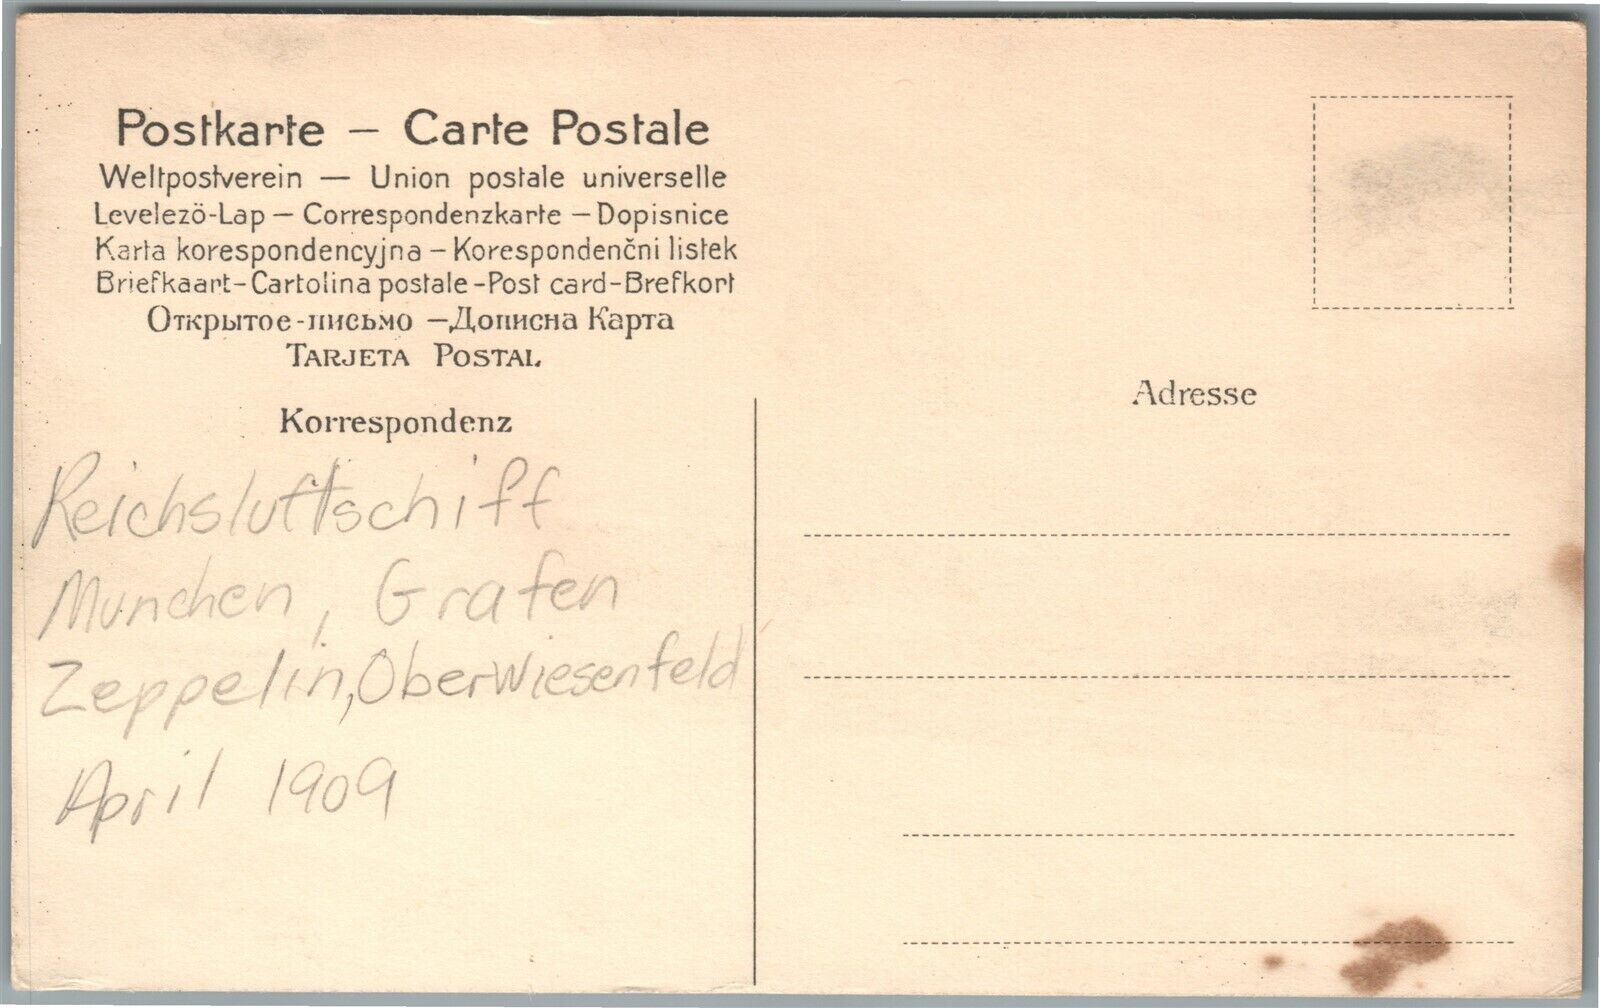 Postkarte – Carte Postale
Weltpostverein — Union postale universelle
Levelezö-Lap – Correspondenzkarte – Dopisnice
Karta korespondencyjna – Korespondenčni listek
Briefkaart-Cartolina postale-Post card-Brefkort
Открытое-письмо –Дописна Карта
TARJETA POSTAL
Korrespondenz
Adresse
Reichsluftschiff
Munchen, Grafen
Zeppelin, Oberwiesenfeld
April 1909